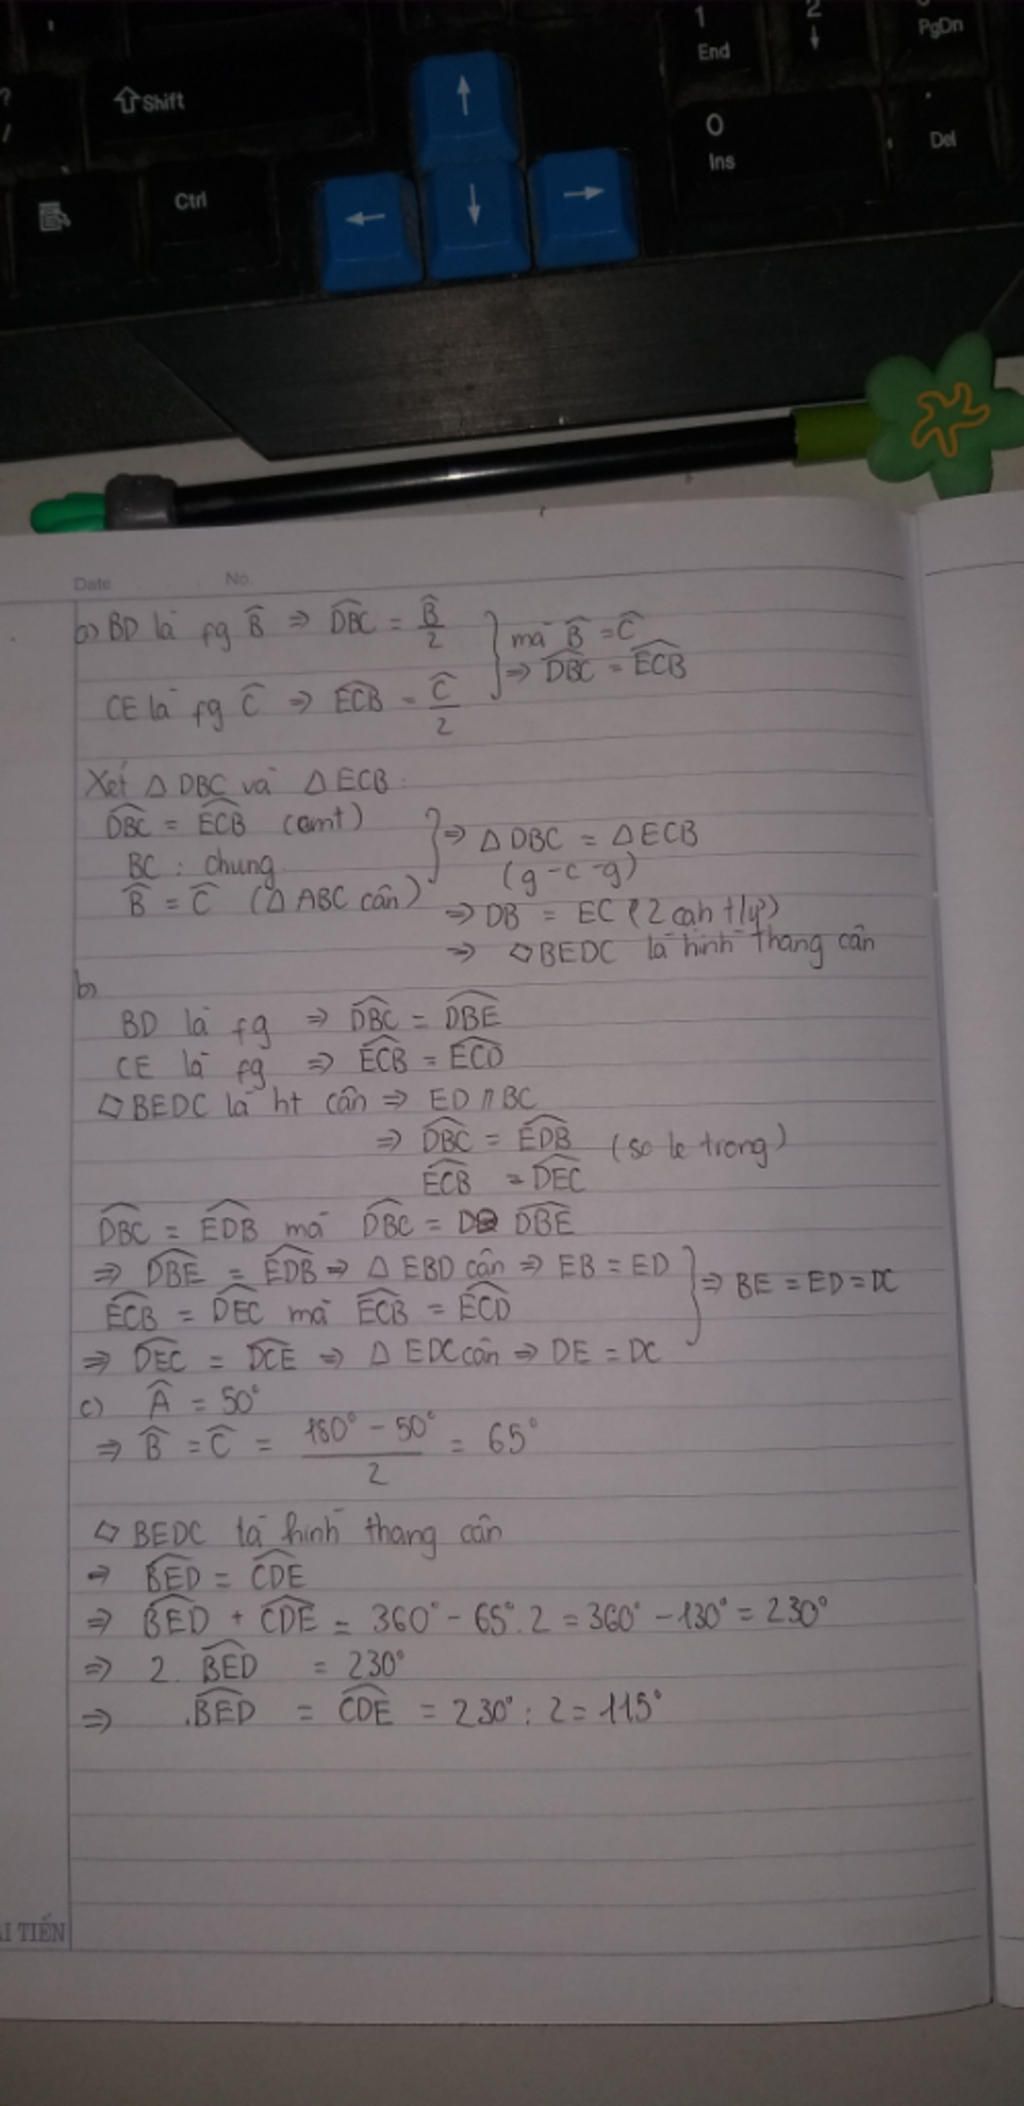 1
End
2
↓
PgDn
?
/
⇧Shift
↑
0
Ins
Del
Ctrl
←
↓
→
Date No.
a) BD là fg B̂ ⇒ \widehat{DBC} = B̂/2
CE là fg Ĉ ⇒ \widehat{ECB} = Ĉ/2
} mà B̂ = Ĉ
⇒ \widehat{DBC} = \widehat{ECB}
Xét Δ DBC và Δ ECB
\widehat{DBC} = \widehat{ECB} (cmt)
BC : chung
B̂ = Ĉ (Δ ABC cân)
} ⇒ Δ DBC = Δ ECB
(g-c-g)
⇒ DB = EC (2 cah t/ư)
⇒ ▱BEDC là hình thang cân
b)
BD là fg ⇒ \widehat{DBC} = \widehat{DBE}
CE là fg ⇒ \widehat{ECB} = \widehat{ECD}
▱ BEDC là ht cân ⇒ ED // BC
⇒ \widehat{DBC} = \widehat{EDB} (so le trong)
\widehat{ECB} = \widehat{DEC}
\widehat{DBC} = \widehat{EDB} mà \widehat{DBC} = \widehat{DBE}
⇒ \widehat{DBE} = \widehat{EDB} ⇒ Δ EBD cân ⇒ EB = ED
\widehat{ECB} = \widehat{DEC} mà \widehat{ECB} = \widehat{ECD}
⇒ \widehat{DEC} = \widehat{DCE} ⇒ Δ EDC cân ⇒ DE = DC
} ⇒ BE = ED = DC
c) Â = 50°
⇒ B̂ = Ĉ = (180° - 50°)/2 = 65°
▱ BEDC là hình thang cân
⇒ \widehat{BED} = \widehat{CDE}
⇒ \widehat{BED} + \widehat{CDE} = 360° - 65°. 2 = 360° - 130° = 230°
⇒ 2. \widehat{BED} = 230°
⇒ \widehat{BED} = \widehat{CDE} = 230° : 2 = 115°
TIẾN